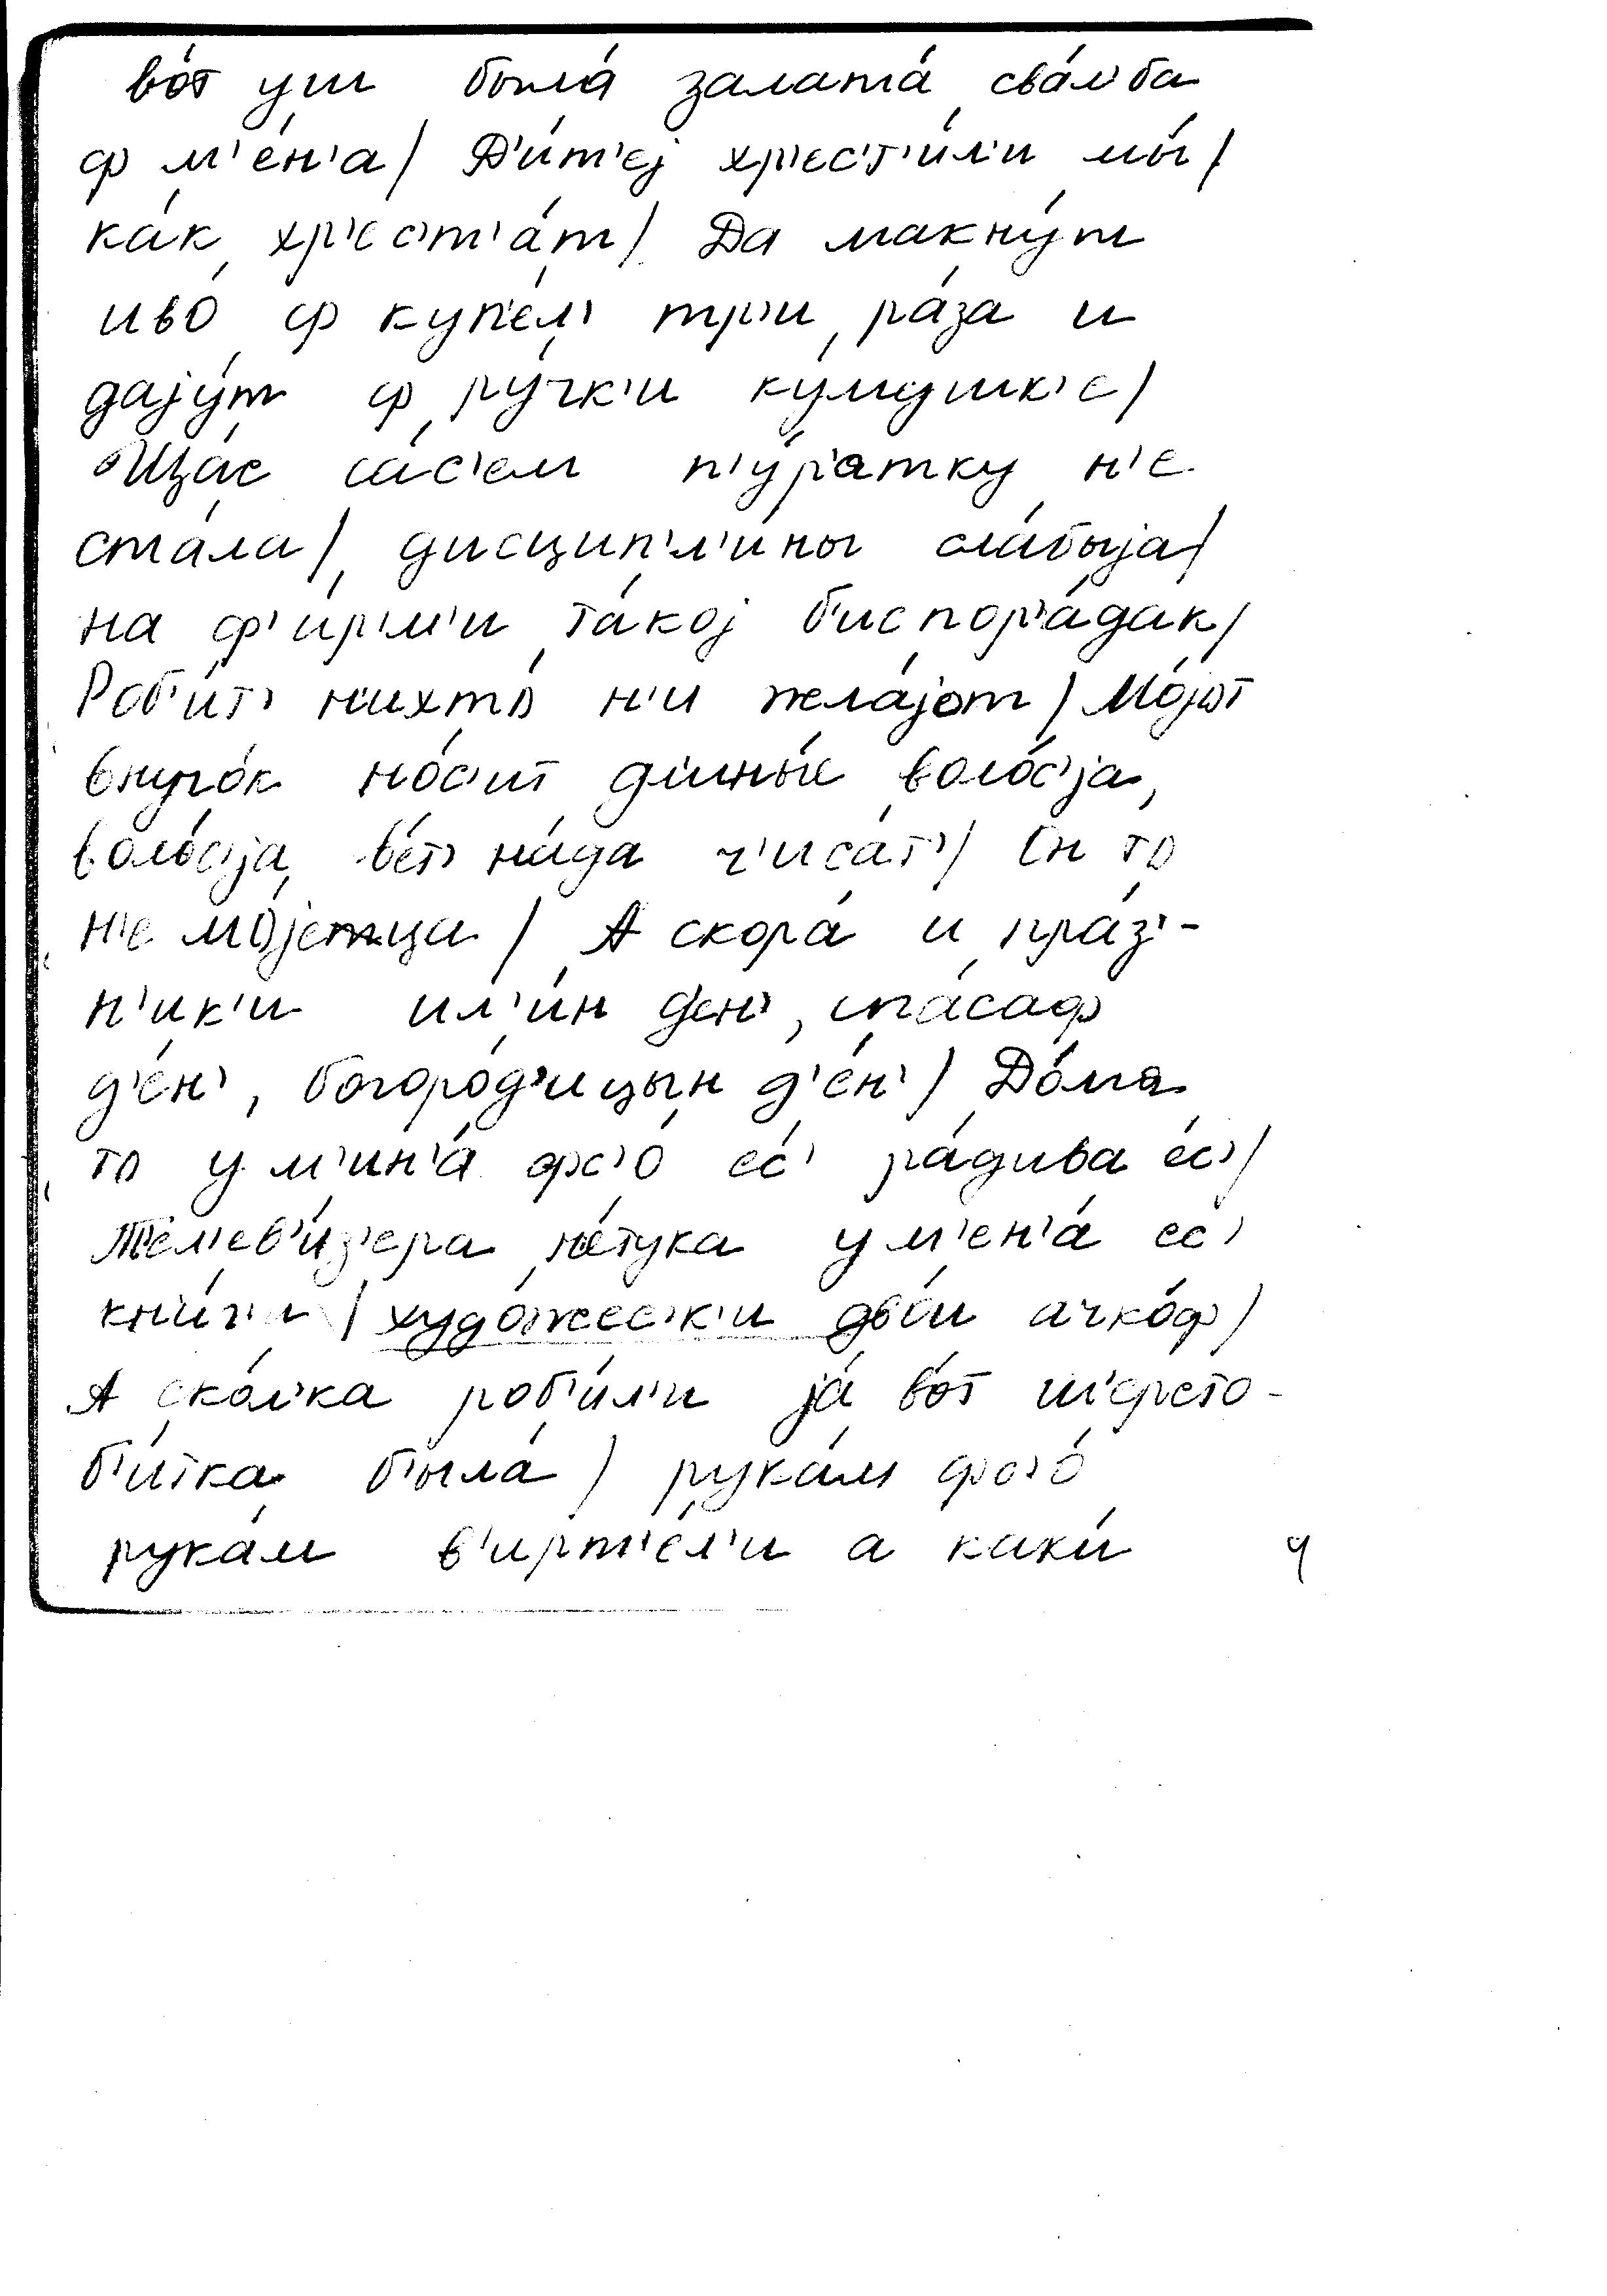 во́т уш была́ залата́ сва́л'ба
ф м'е́н'а / Д'и́т'еј хр'ес'т'и́л'и мы́ /
ка́к хр'ес'т'а́т / Да макну́т
иво́ ф купе́л' тр'и ра́за и
дају́т ф ру́чк'и куму́шк'е /
Ща́с са́с'ем п'у́р'атку н'е
ста́ла / дисцип'л'и́ны сла́быја /
на ф'и́р'м'и та́кој б'испор'а́дак /
Роб'и́т' н'ихто́ н'и жела́јот / Мо́јот
внучо́к но́с'ит д'и́нные воло́с'ја,
воло́с'ја ве́т' на́да ч'иса́т' / Он то
н'е мо́јетца / А скора́ и пра́з'-
н'ик'и ил'и́н ден', спа́саф
д'е́н', богоро́д'ицын д'е́н' / До́ма
то у м'ин'а́ фс'о́ ес' ра́дива е́с' /
Т'ел'ев'и́з'ера не́тука у м'ен'а́ ес'
кни́г'и / худо́жесс'к'и дво́и ачко́ф /
А ско́л'ка роб'и́л'и ја́ во́т ш'ерсто-
б'и́тка была́ / рука́м фс'о́
рука́м в'ирт'е́л'и а каки́
4